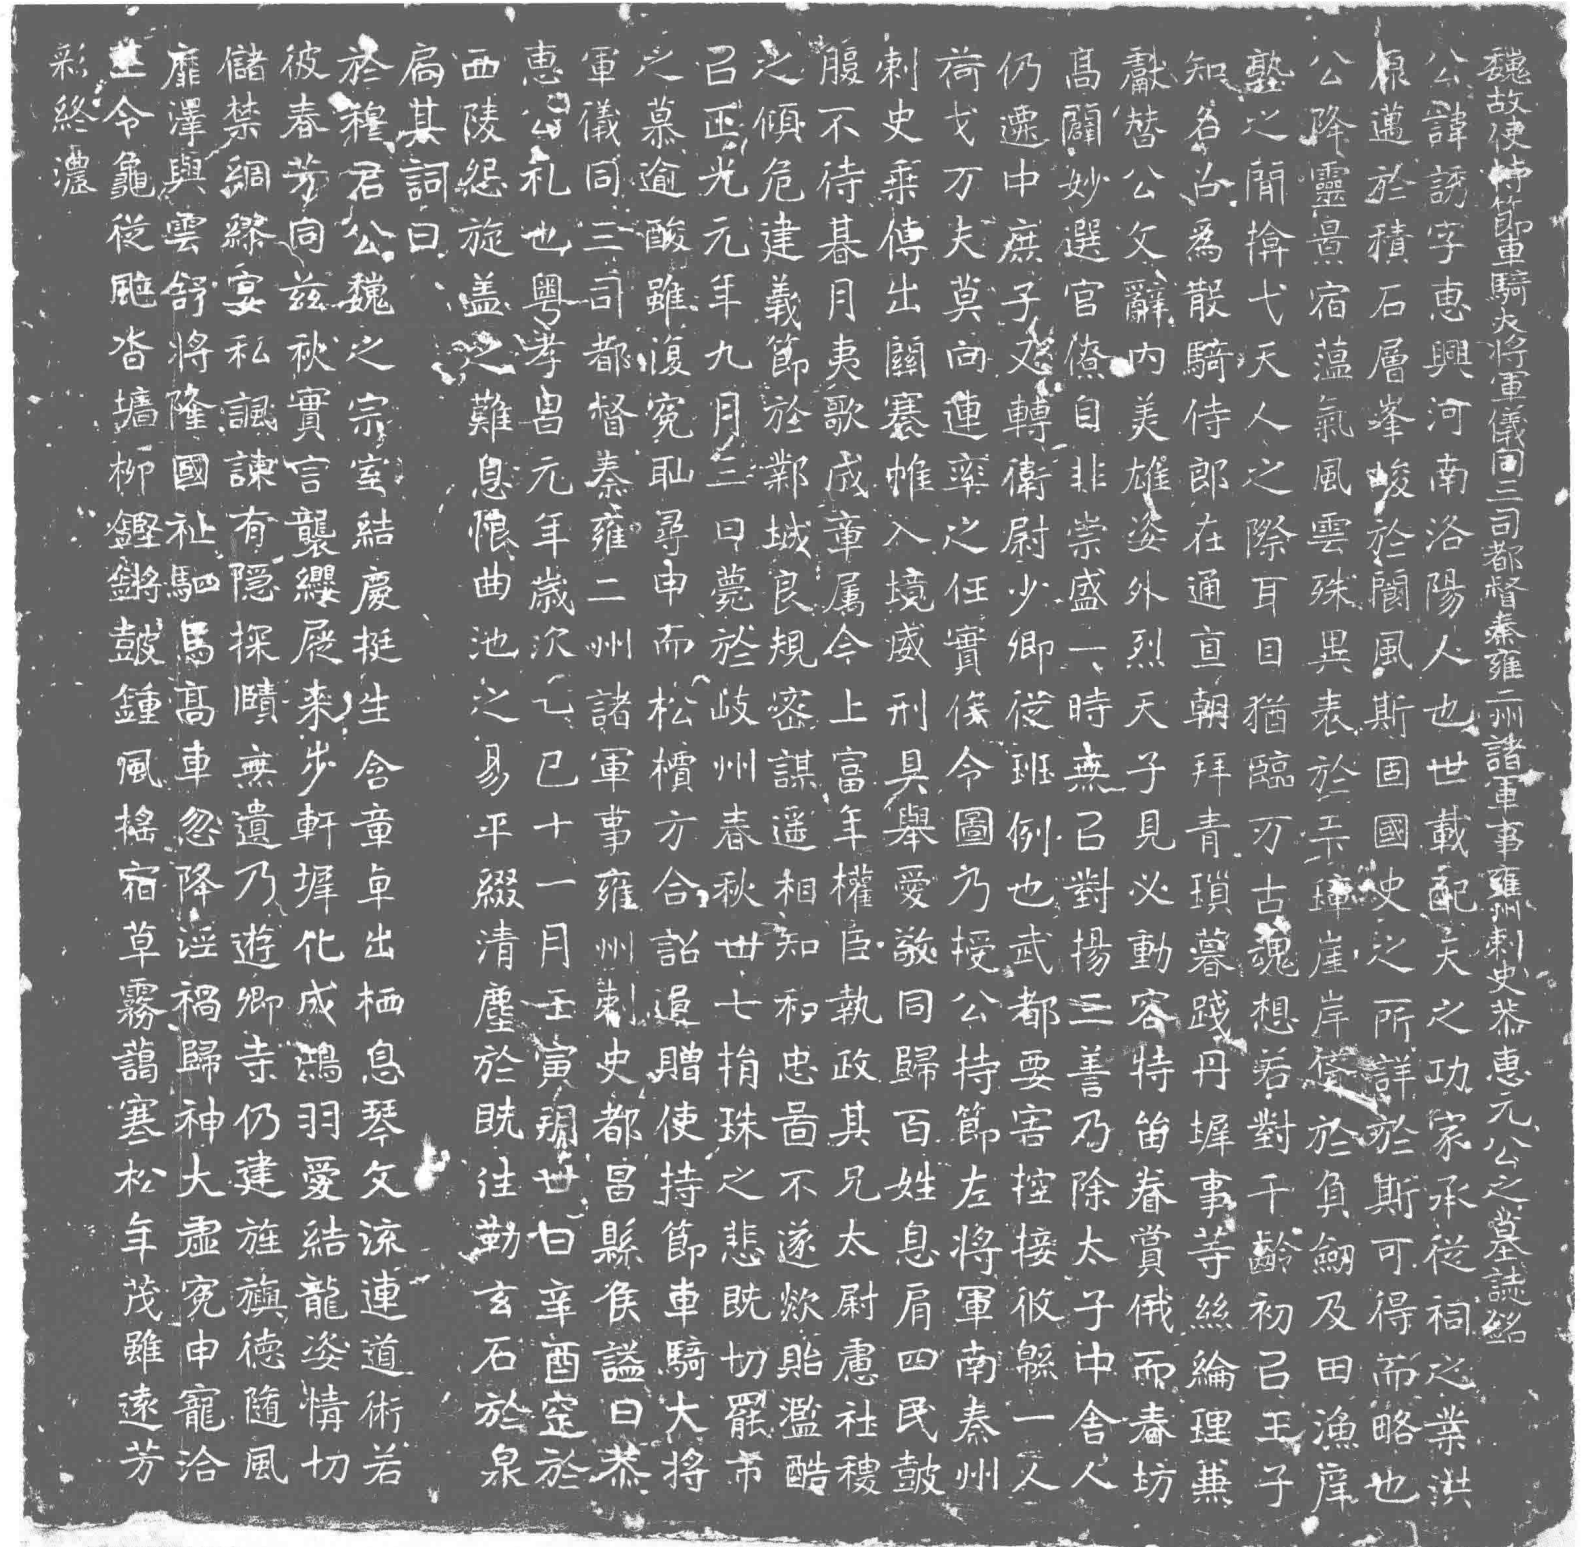 魏故使持節車騎大將軍儀同三司都督秦雍二州諸軍事雍州刺史恭惠元公之墓誌銘
公諱誘字惠興河南洛陽人也世載配天之功家承從祠之業洪
源邁於積石層峯峻於閬風斯固國史之所詳於斯可得而略也
公降靈昴宿薀氣風雲殊異表於弄璋崖岸俊於負劒及田漁庠
塾之間揜弋天人之際耳目猶臨万古魂想若對千齡初召王子
知名占為散騎侍郎在通直朝拜青瑣暮踐丹墀事等絲綸理兼
獻替公文辭內美雄姿外烈天子見必動容特笛眷賞俄而春坊
高闢妙選官僚自非崇盛一時無召對揚三善乃除太子中舍人
仍遷中庶子又轉衛尉少卿從班例也武都要害控接攸緜一人
荷戈万夫莫向連率之任實佇令圖乃授公持節左將軍南秦州
刺史乘傳出關褰帷入境威刑具舉愛敬同歸百姓息肩四民鼓
腹不待朞月夷歌成章属今上富年權臣執政其兄太尉慮社稷
之傾危建義節於鄴城良規密謀遥相知和忠啚不遂欻貽濫酷
召正光元年九月三日薨於岐州春秋卅七捐珠之悲既切罷市
之慕逾酸雖復寃耻尋申而松檟方合詔追贈使持節車騎大將
軍儀同三司都督秦雍二州諸軍事雍州刺史都昌縣侯謚曰恭
惠公礼也粤孝昌元年歲次乙巳十一月壬寅朔廿日辛酉窆於
西陵怨旋盖之難息恨曲池之易平綴清塵於眺往勒玄石於泉
扃其詞曰
於穆君公魏之宗室結慶挺生含章卓出栖息琴文流連道術若
彼春芳同兹秋實言襲纓展来步軒墀化成鴻羽愛結龍姿情切
儲禁綢繆宴私諷諫有隱探賾無遺乃遊卿寺仍建旌旟德隨風
靡澤與雲舒將隆國祉駟馬高車忽降淫禍歸神大虛寃申寵洽
令龜從颰沓墻柳鏗鏘鼓鍾風搖宿草霧藹寒松年茂雖遠芳
彩終濃